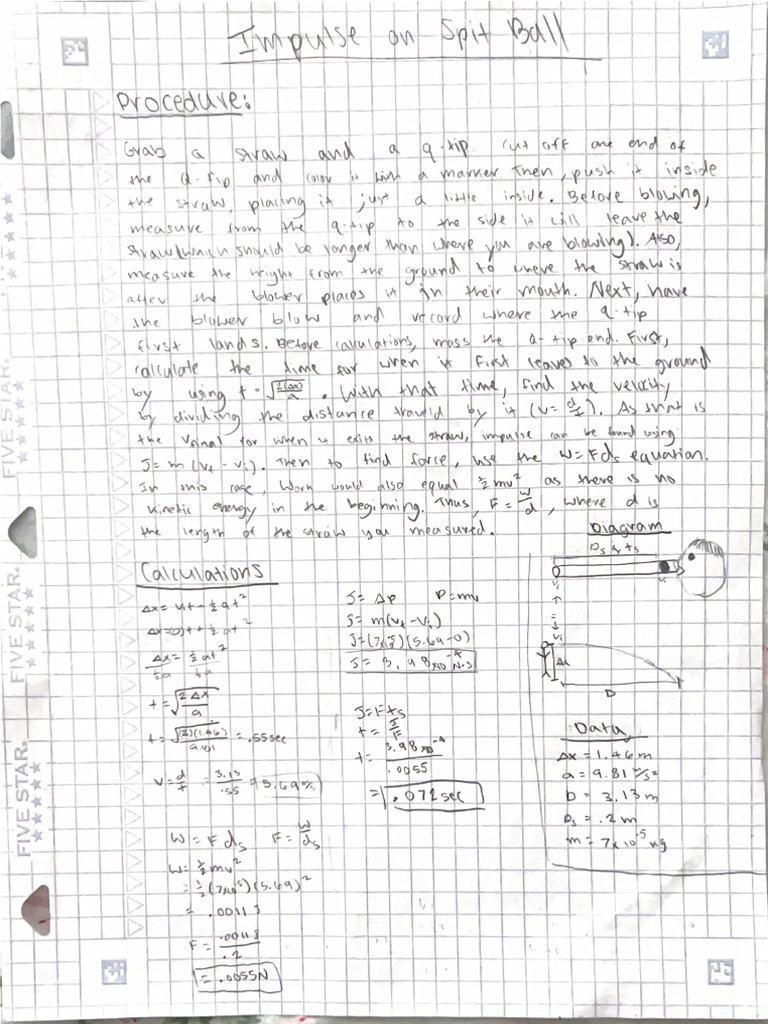 Impulse on Spit Ball
Procedure:
Grab a straw and a q-tip. Cut off one end of
the Q-tip and color it with a marker. Then, push it inside
the straw, placing it just a little inside. Before blowing,
measure from the q-tip to the side it will leave the
straw (which should be longer than where you are blowing). Also,
measure the hright from the ground to where the straw is
after the blower places it in their mouth. Next, have
the blower blow and record where the q-tip
first lands. Before calculations, mass the q-tip end. First,
calculate the time for when it first leaves to the ground
by using t = √(2(Δx)/a). With that time, find the velocity
by dividing the distance traveld by it (v = d/t). As that is
the Vfinal for when it exits the straw, impulse can be found using
J = m(vf - vi). Then to find force, use the W = Fds equation.
In this case, Work would also equal ½mv² as there is no
kinetic energy in the beginning. Thus, F = W/d, where d is
the length of the straw you measured.
Diagram
Ds & ts
vf
vi
Δx
D
Calculations
Δx = vit + ½at²
Δx = (0)t + ½at²
Δx/½a = ½at²/½a
t = √(2Δx/a)
t = √((2)(1.46)/9.81) = .55 sec
v = d/t = 3.13/.55 = 5.69 m/s
W = F ds F = W/ds
W = ½mv²
= ½(7x10⁻⁵)(5.69)²
= .0011 J
F = .0011J/.2
= .0055N
J = Δp P = mv
J = m(vf - vi)
J = (7x10⁻⁵)(5.69 - 0)
J = 3.98x10⁻⁴ N·s
J = F ts
t = J/F
t = 3.98x10⁻⁴/.0055
= .072 sec
Data
Δx = 1.46 m
a = 9.81 m/s²
D = 3.13 m
Ds = .2 m
m = 7x10⁻⁵ kg
FIVE STAR.
FIVE STAR.
FIVE STAR.